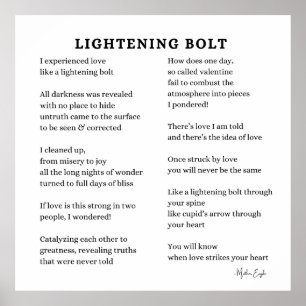 LIGHTENING BOLT
I experienced love
like a lightening bolt
All darkness was revealed
with no place to hide
untruth came to the surface
to be seen & corrected
I cleaned up,
from misery to joy
all the long nights of wonder
turned to full days of bliss
If love is this strong in two
people, I wondered!
Catalyzing each other to
greatness, revealing truths
that were never told
How does one day,
so called valentine
fail to combust the
atmosphere into pieces
I pondered!
There's love I am told
and there's the idea of love
Once struck by love
you will never be the same
Like a lightening bolt through
your spine
like cupid's arrow through
your heart
You will know
when love strikes your heart